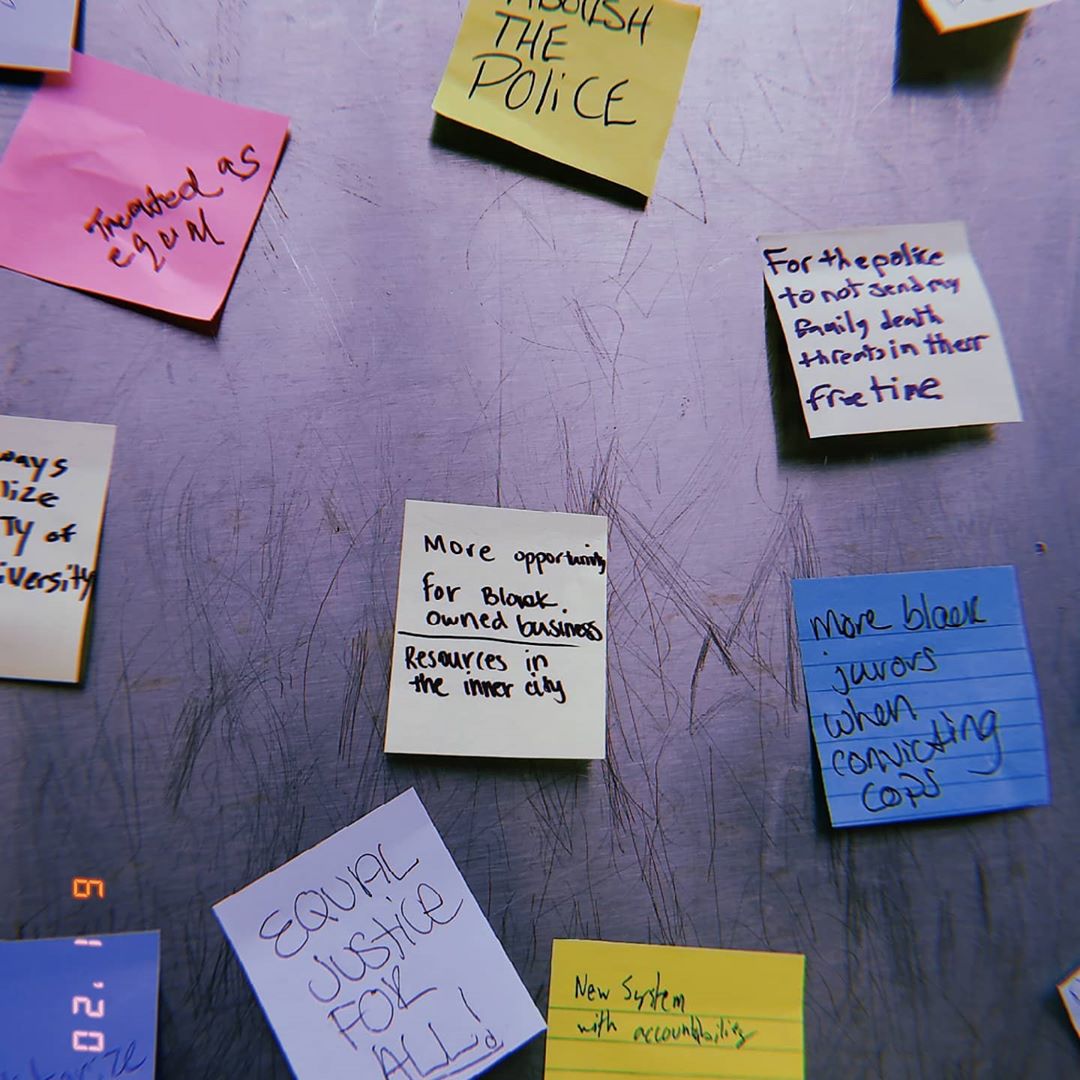 ABOLISH
THE
POLiCE
Treated as
equal
For the police
to not send my
family death
threats in their
free time
ways
lize
TY of
iversity
More opportunity
for Black
owned business
Resources in
the inner city
More black
jurors
when
convicting
cops
EQUAL
JUSTiCE
FOR
ALL!
New System
with accountability
6 1 '20